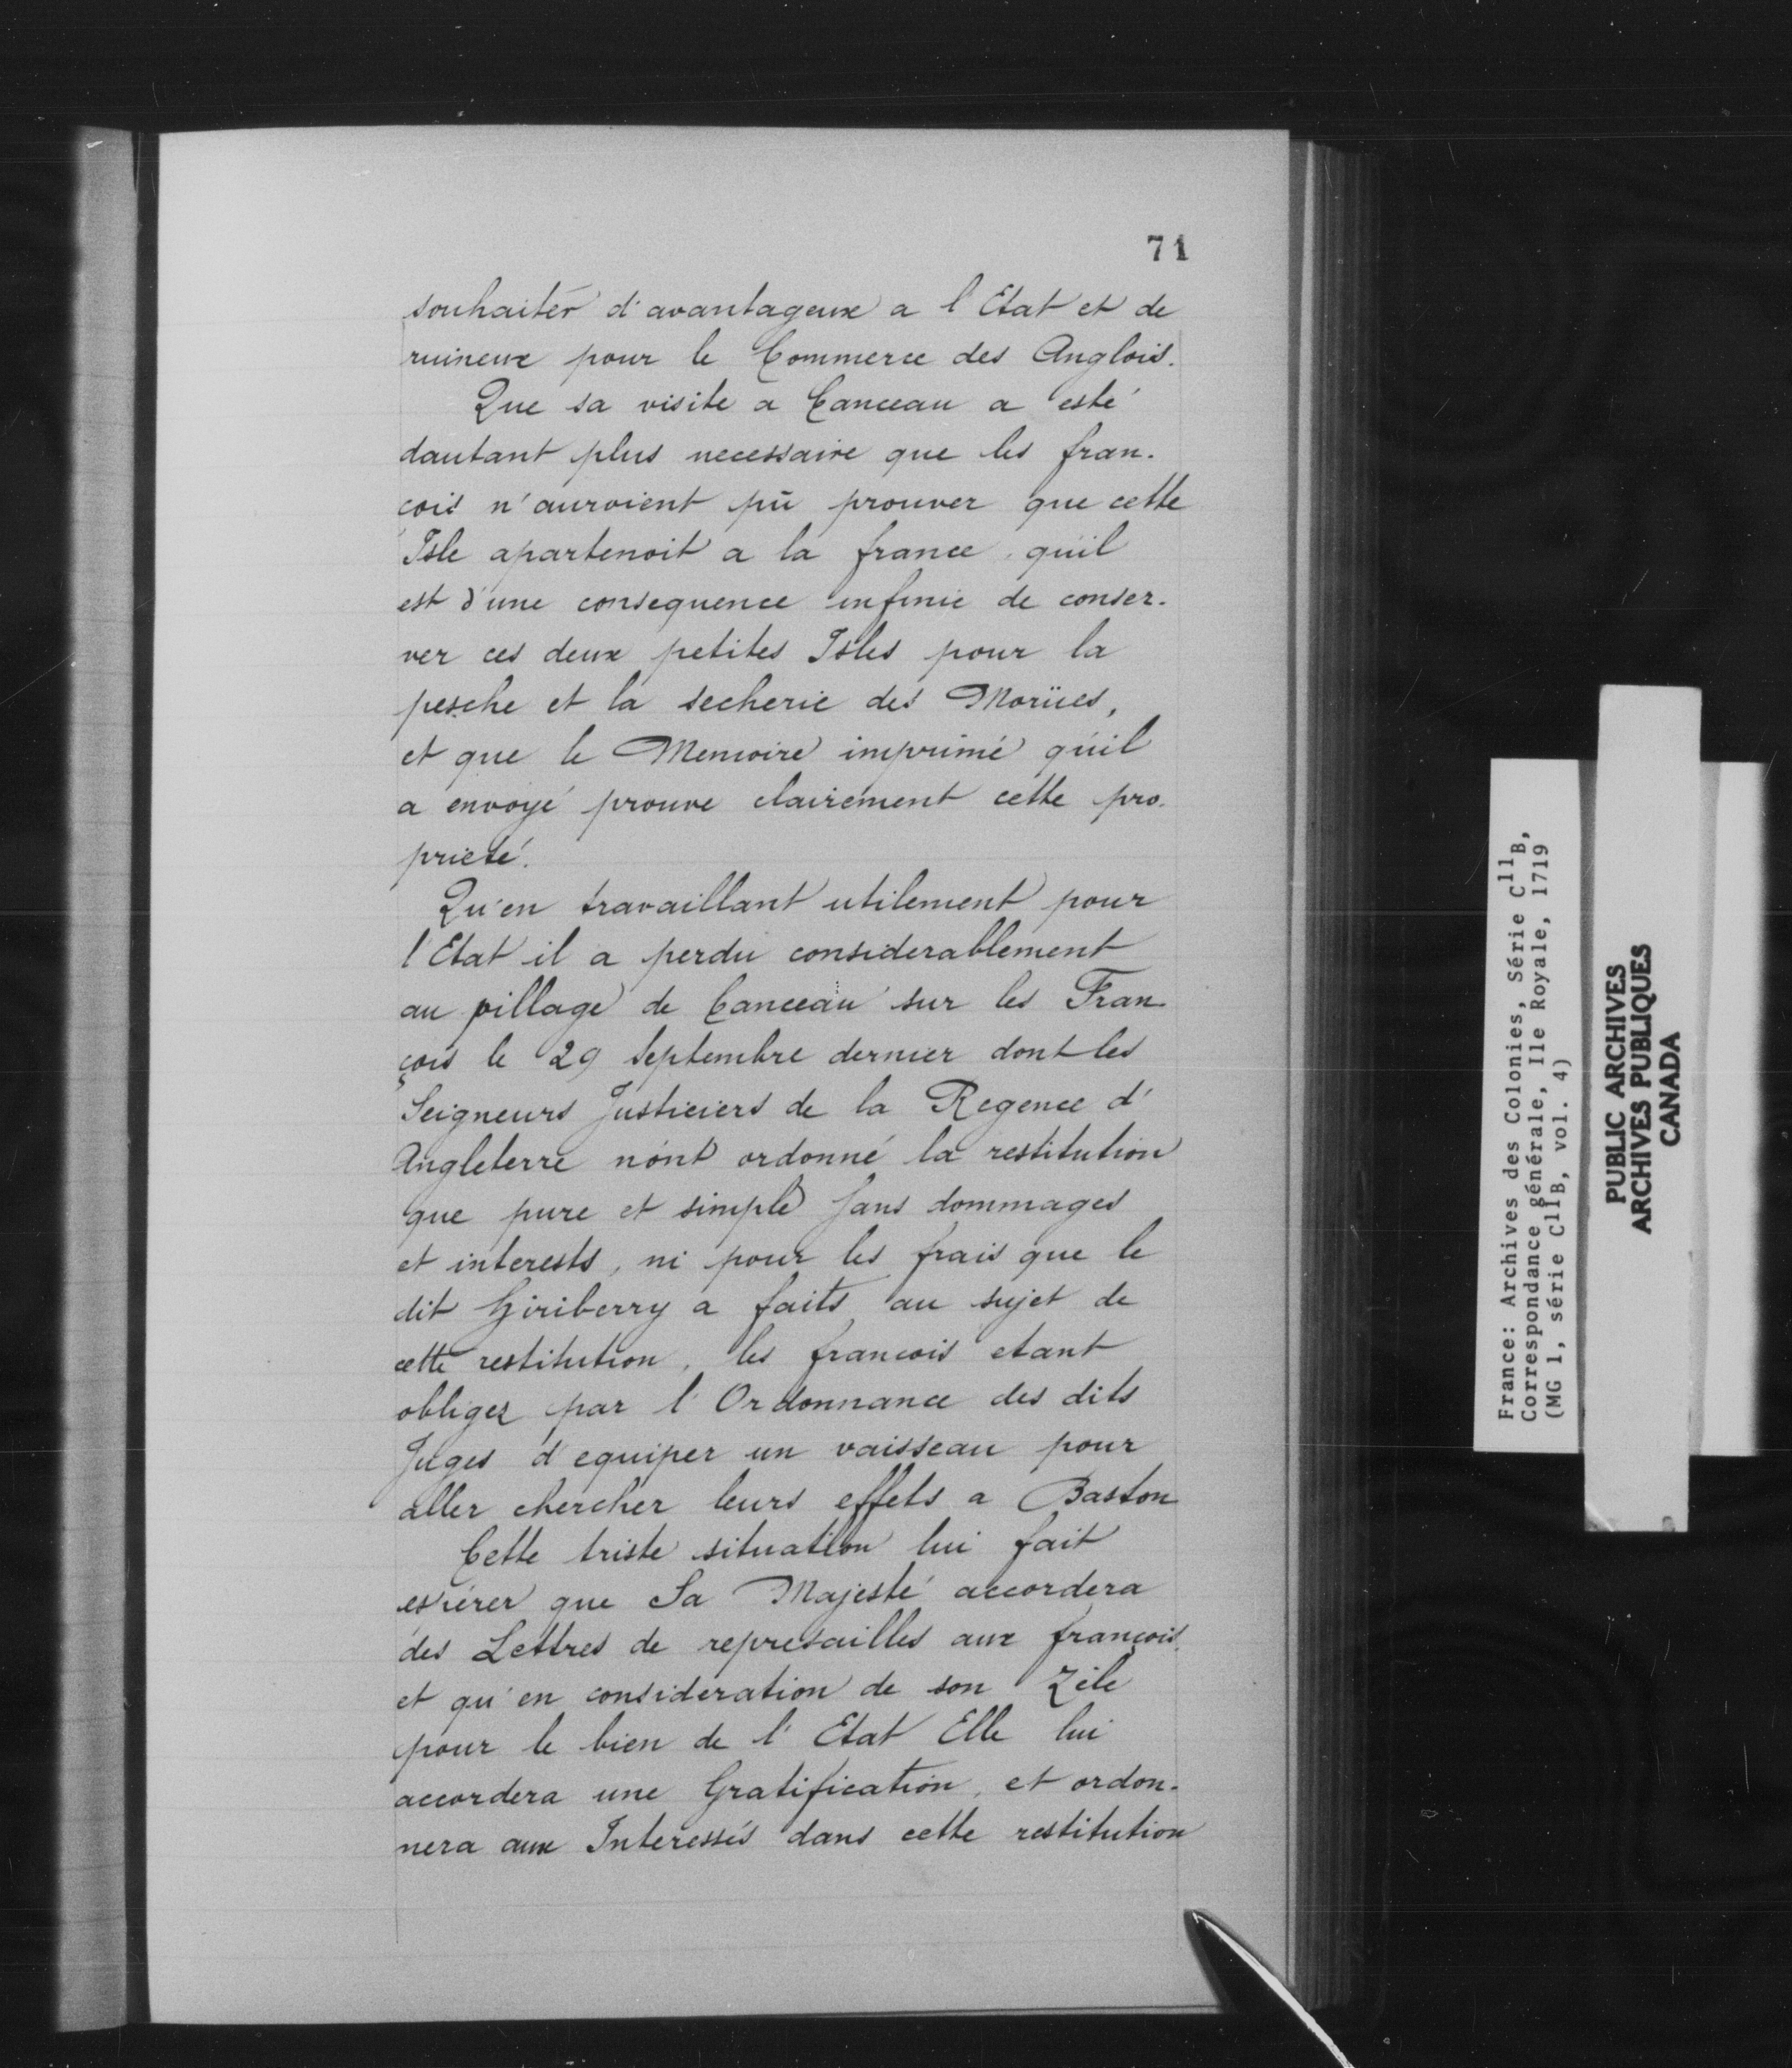 71
souhaiter d'avantageux a l'Etat et de
ruineux pour le Commerce des Anglois.
Que sa visite a Canceau a esté
dautant plus necessaire que les fran-
cois n'auroient pû prouver que cette
Isle apartenoit a la france, qu'il
est d'une consequence infinie de conser-
ver ces deux petites Isles pour la
pesche et la secherie des Morües,
et que le Memoire imprimé qu'il
a envoyé prouve clairement cette pro-
prieté.
Qu'en travaillant utilement pour
l'Etat il a perdu considerablement
au pillage de Canceau sur les Fran
çois le 29 Septembre dernier dont les
Seigneurs Justiciers de la Regence d'
Angleterre n'ont ordonné la restitution
que pure et simple sans dommages
et interests, ni pour les frais que le
dit Hiriberry a faits au sujet de
cette restitution, les francois etant
obligez par l'Ordonnance des dits
Juges d'equiper un vaisseau pour
aller chercher leurs effets a Baston
Cette triste situation lui fait
esperer que Sa Majesté accordera
des Lettres de represailles aux françois,
et qu'en consideration de son Zéle
pour le bien de l'Etat Elle lui
accordera une Gratification, et ordon-
nera aux Interessés dans cette restitution
France: Archives des Colonies, Série C11B,
Correspondance générale, Ile Royale, 1719
(MG 1, série C11B, vol. 4)
PUBLIC ARCHIVES
ARCHIVES PUBLIQUES
CANADA